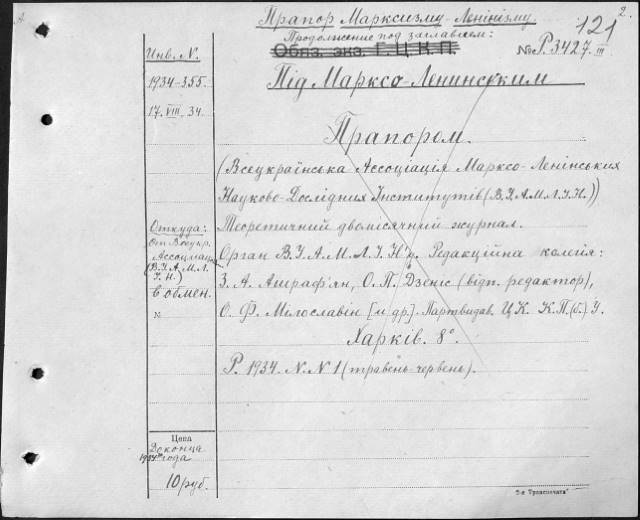 Прапор Марксизму-Ленінізму.
Продолжение под заглавием:
Обяз. экз. Г.Ц.К.П.
121
2.
№ Р.3427. III
Инв. N.
1934-355.
17. VIII. 34.
Під Марксо-Ленинським
Прапором.
(Всеукраїнська Ассоціація Марксо-Ленінських
Науково-Дослідних Інститутів (В.У.А.М.Л.І.Н.))
Теоретичний двомісячний журнал.
Орган В.У.А.М.Л.І.Н'у. Редакційна колегія:
З. А. Ашраф'ян, О. П. Дзеніс (відп. редактор),
О. Ф. Мілославін [и др.]. Партвидав. Ц.К. К.П.(б.)У.
Харків. 8°.
Р. 1934. N.N 1 (травень-червень).
Откуда:
От Всеукр.
Ассоциации
(В.У.А.М.Л.
І.Н.)
в обмен.
N
Цена
До конца
1934 года
10 руб.